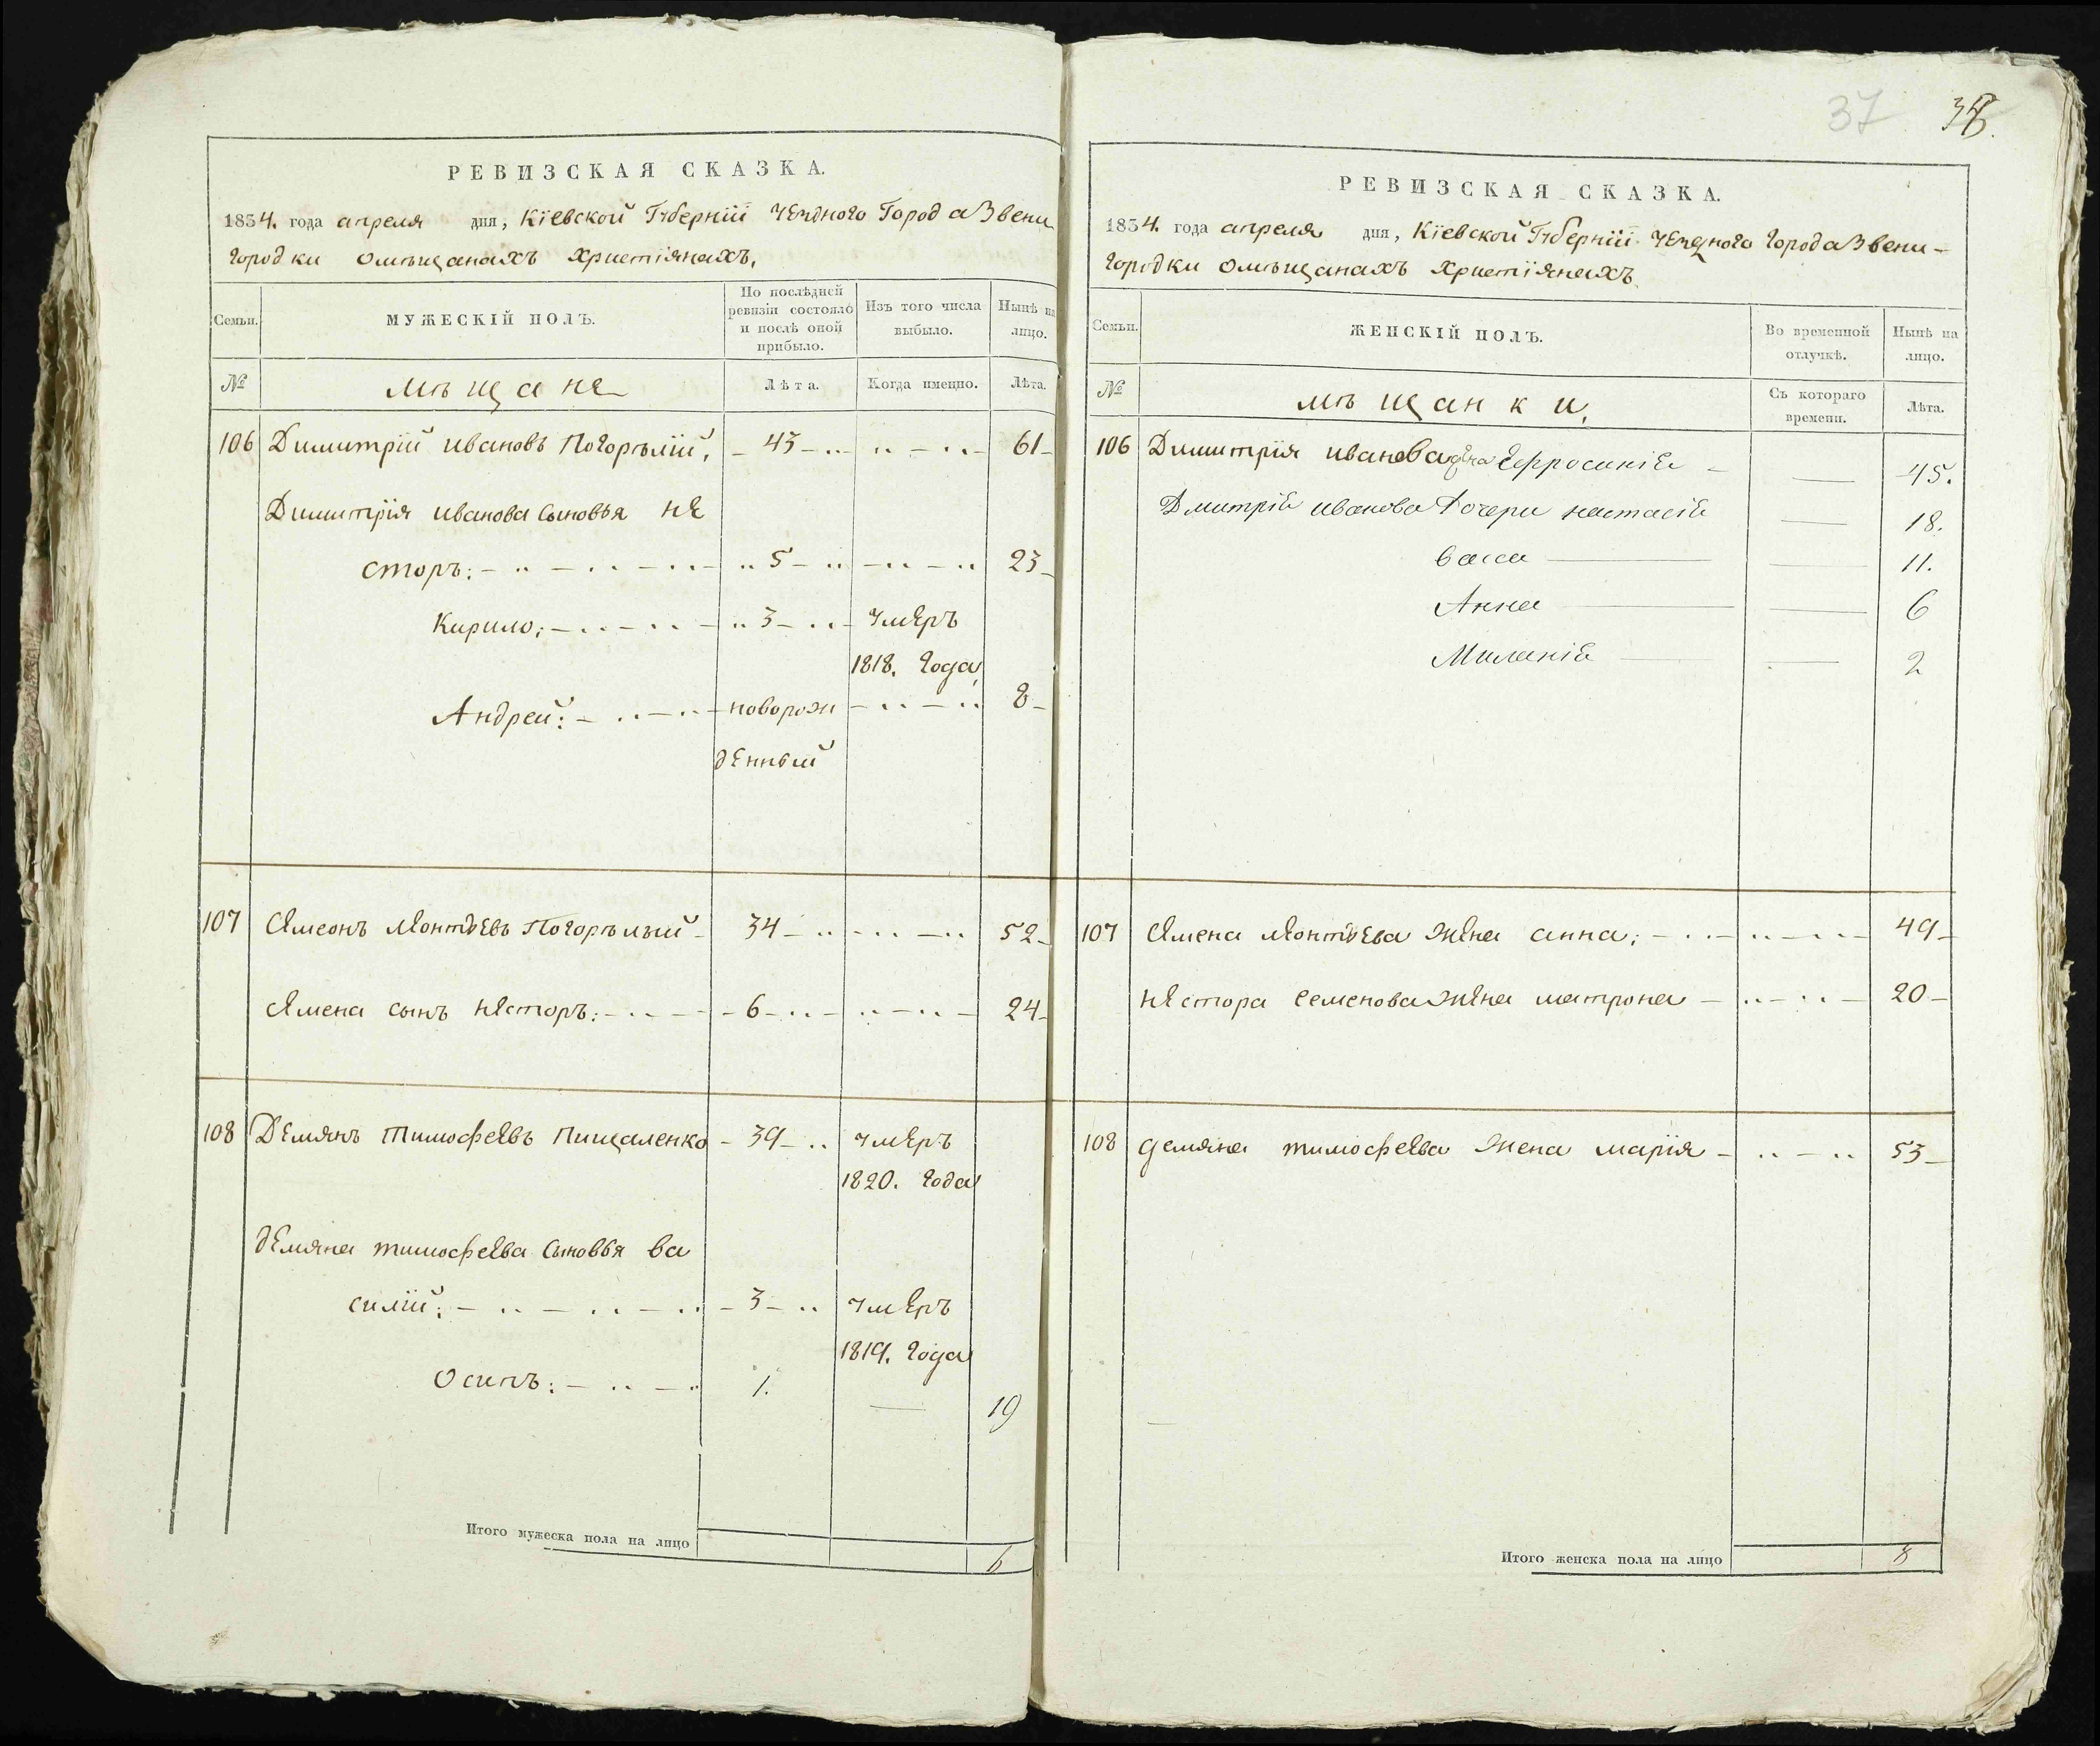 37 38.
РЕВИЗСКАЯ СКАЗКА.
1834. года апреля дня, Кіевской Губерніи уезного Города Звени
городки омѣщанахъ христіянахъ.
Семьи.
МУЖЕСКІЙ ПОЛЪ.
По послѣдней
ревизіи состояло
и послѣ оной
прибыло.
Изъ того числа
выбыло.
Нынѣ на
лицо.
№
мѣщане
Лѣта.
Когда имецно.
Лѣта.
106 Димитрій ивановъ Погорѣлій, 43 61
Димитрія иванова сыновья не
сторъ: 5 23
Кирило: 3 умеръ
1818. года
Андрей: новорож 8
денный
107 Семеонъ леонтьевъ Погорѣлый 34 52
Семена сынъ несторъ: 6 24
108 Демянъ тимофеевъ Пищаленко 39 умеръ
1820. года
демяна тимофеева сыновья ва
силій: 3 умеръ
1819. года
Осипъ: 1. 19
Итого мужеска пола на лицо 6
РЕВИЗСКАЯ СКАЗКА.
1834. года апреля дня, Кіевской Губерніи уезного города Звени-
городки омѣщанахъ христіянахъ
Семьи.
ЖЕНСКІЙ ПОЛЪ.
Во временной
отлучкѣ.
Нынѣ на
лицо.
№
мѣщанки,
Съ котораго
времени.
Лѣта.
106 Димитрія иванова жена Ефросинія 45.
Дмитрія иванова дочери настасія 18.
васса 11.
Анна 6
Миланія 2
107 Семена леонтьева жена анна: 49
нестора семенова жена матрона 20
108 демяна тимофеева жена марія 53
Итого женска пола на лицо 8